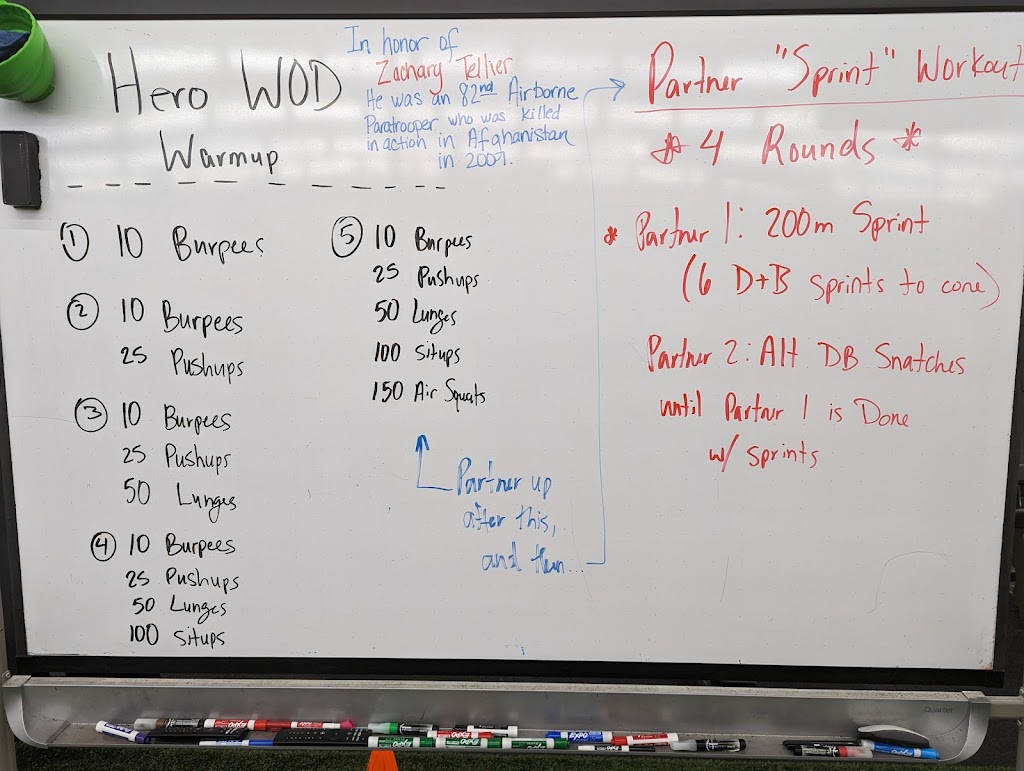 Hero WOD
Warmup
In honor of
Zachary Tellier
He was an 82nd Airborne
Paratrooper who was killed
in action in Afghanistan
in 2007.
① 10 Burpees
② 10 Burpees
25 Pushups
③ 10 Burpees
25 Pushups
50 Lunges
④ 10 Burpees
25 Pushups
50 Lunges
100 Situps
⑤ 10 Burpees
25 Pushups
50 Lunges
100 Situps
150 Air Squats
Partner up
after this,
and then...
Partner "Sprint" Workout
* 4 Rounds *
* Partner 1: 200m Sprint
(6 D+B sprints to cone)
Partner 2: Alt DB Snatches
until Partner 1 is Done
w/ sprints
Quartet
EXPO